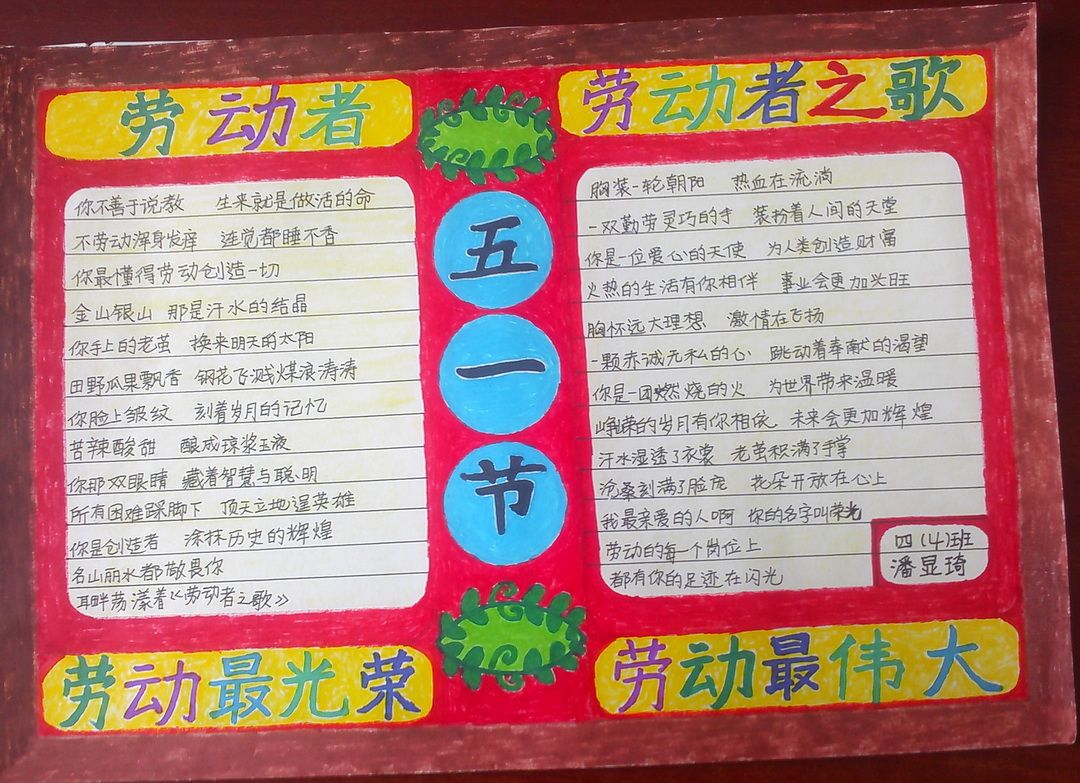 劳动者
你不善于说教 生来就是做活的命
不劳动浑身发痒 连觉都睡不香
你最懂得劳动创造一切
金山银山 那是汗水的结晶
你手上的老茧 换来明天的太阳
田野瓜果飘香 钢花飞溅煤浪涛涛
你脸上皱纹 刻着岁月的记忆
苦辣酸甜 酿成琼浆玉液
你那双眼睛 藏着智慧与聪明
所有困难踩脚下 顶天立地逞英雄
你是创造者 涂抹历史的辉煌
名山丽水都敬畏你
耳畔荡漾着《劳动者之歌》
劳动最光荣
五
一
节
劳动者之歌
胸装一轮朝阳 热血在流淌
一双勤劳灵巧的手 装扮着人间的天堂
你是一位爱心的天使 为人类创造财富
火热的生活有你相伴 事业会更加兴旺
胸怀远大理想 激情在飞扬
一颗赤诚无私的心 跳动着奉献的渴望
你是一团燃烧的火 为世界带来温暖
峥嵘的岁月有你相依 未来会更加辉煌
汗水湿透了衣裳 老茧积满了手掌
沧桑刻满了脸庞 花朵开放在心上
我最亲爱的人啊 你的名字叫荣光
劳动的每一个岗位上
都有你的足迹在闪光
四(4)班
潘显琦
劳动最伟大